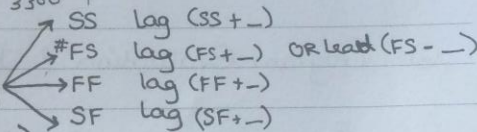 3300
SS lag (SS+_)
#FS lag (FS+_) OR Lead (FS-_)
FF lag (FF+_)
SF lag (SF+_)